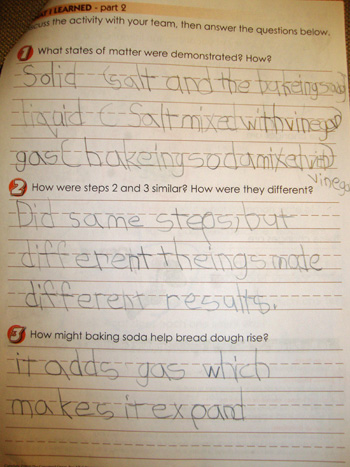 I LEARNED - part 2
cuss the activity with your team, then answer the questions below.
1 What states of matter were demonstrated? How?
Solid (salt and the bakeingsoda)
liquid (Salt mixed with vinegar)
gas (bakeingsoda mixed with
vinegar
2 How were steps 2 and 3 similar? How were they different?
Did same steps, but
different theings made
different results.
3 How might baking soda help bread dough rise?
it adds gas which
makes it expand